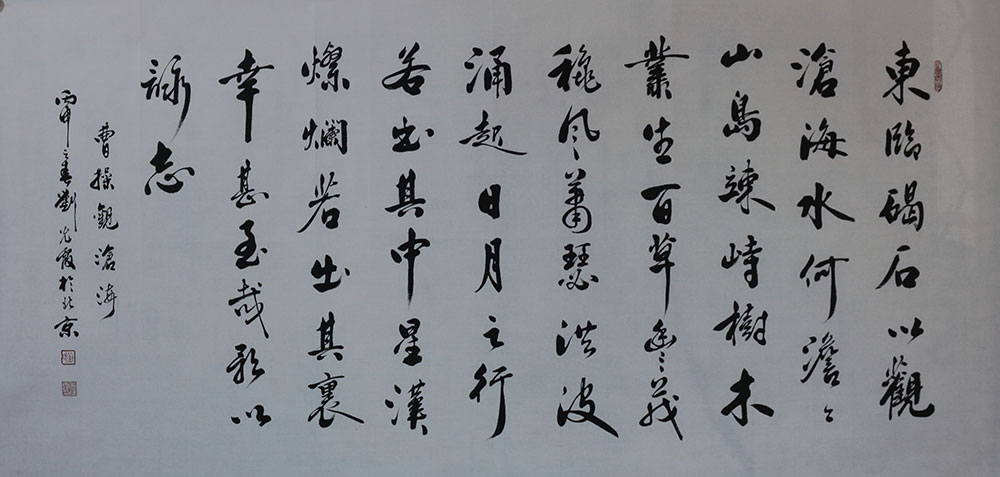 東臨碣石以觀
滄海水何澹〻
山島竦峙樹木
叢生百草豐茂
穐風蕭瑟洪波
涌起日月之行
若出其中星漢
燦爛若出其裏
幸甚至哉歌以
詠志
曹操觀滄海
丙申之春劉光霞於北京